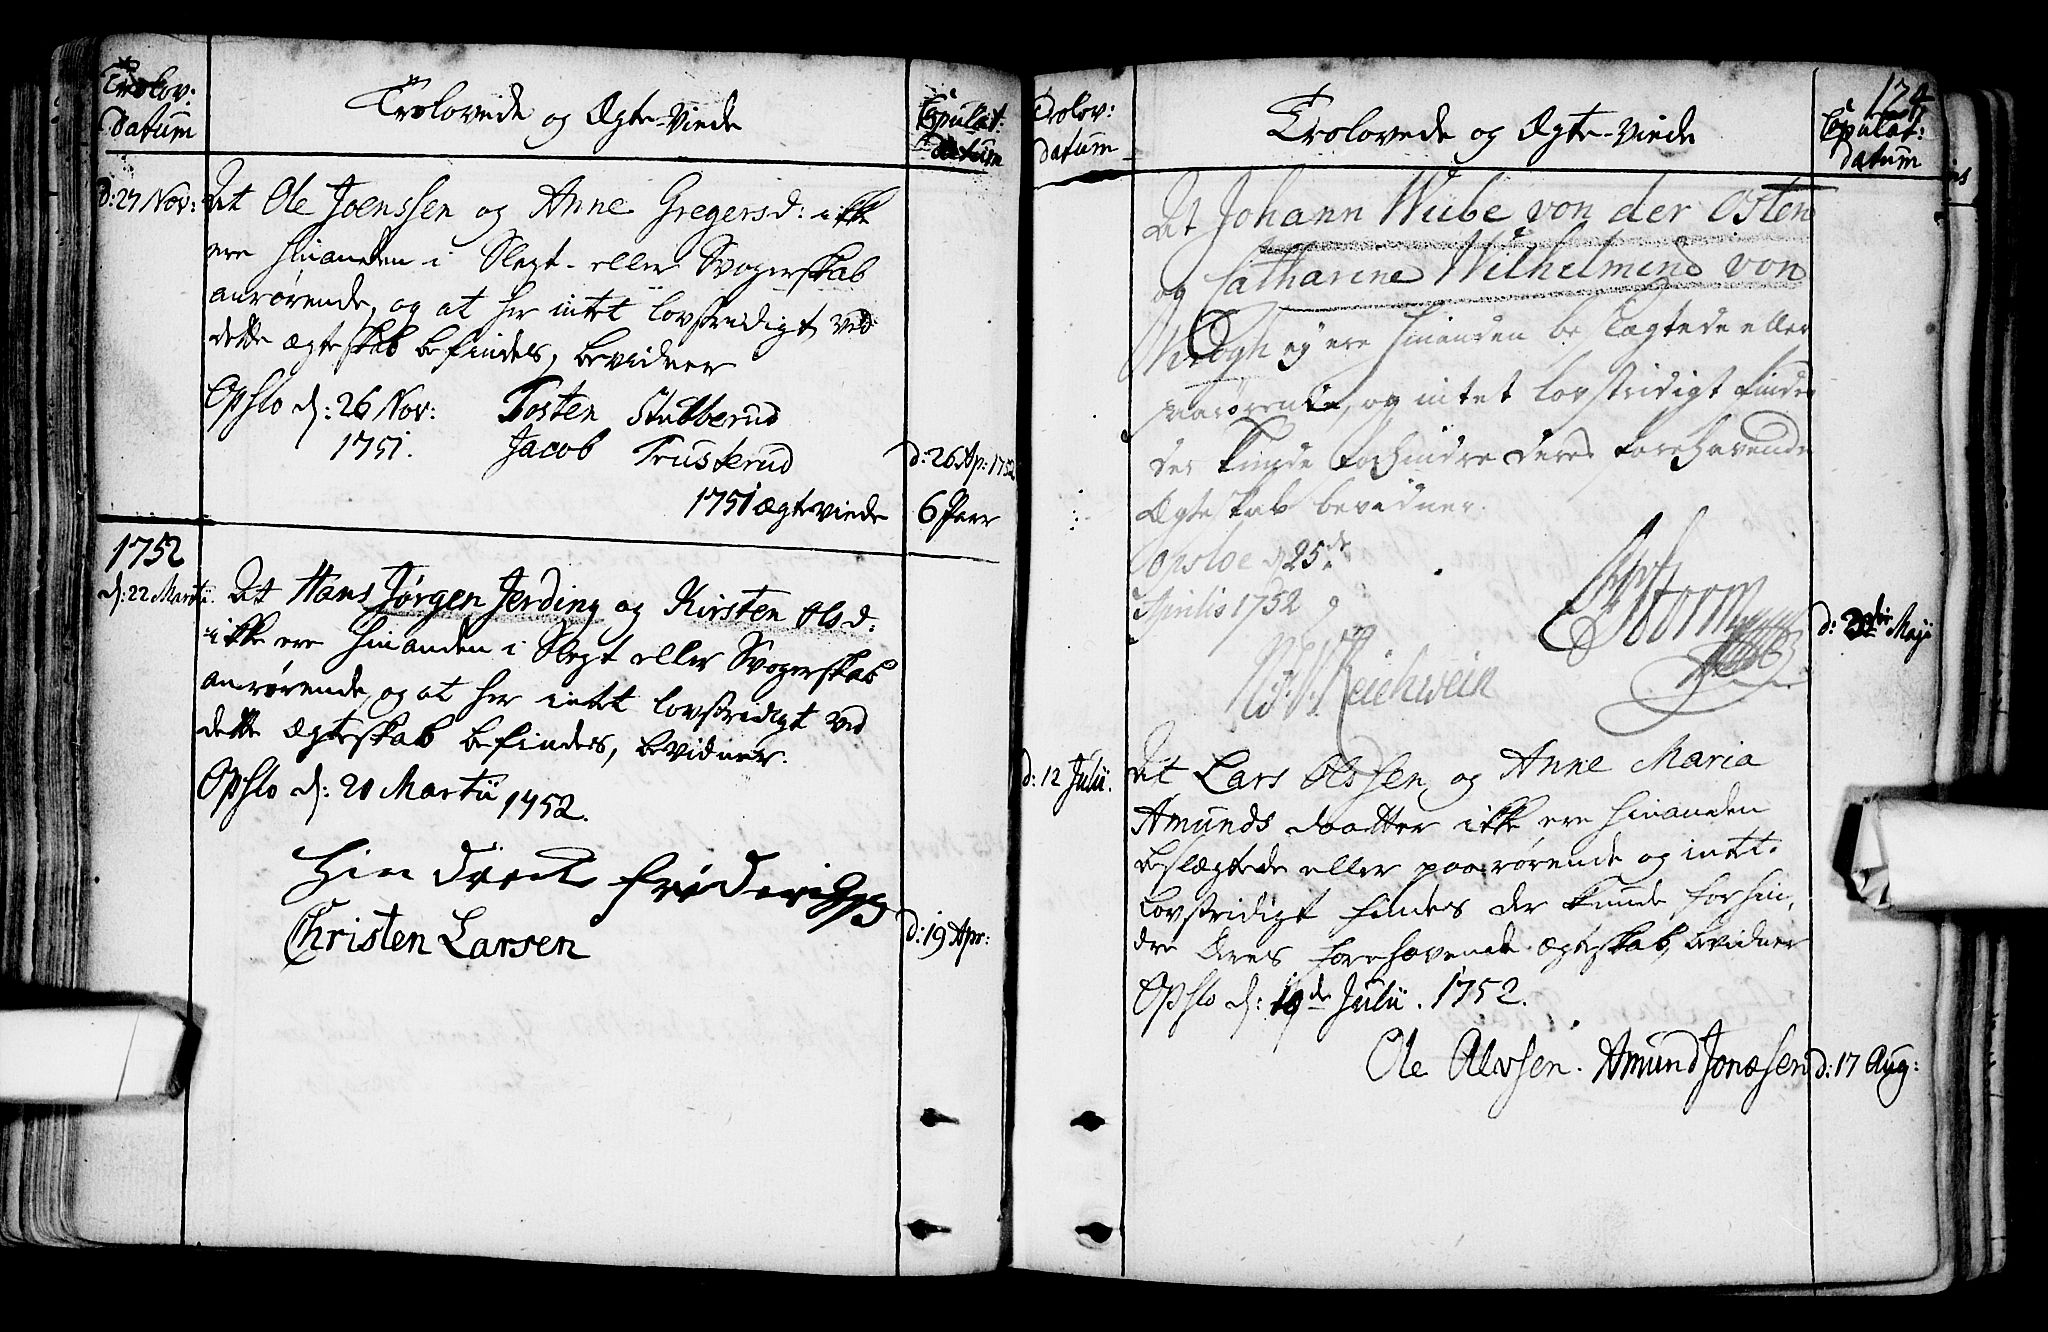 Trolov:
datum
Trolovede og Ægte-viede
Copulat:
datum
d: 27 Nov:
At Ole Joenssen og Anne Gregersd: ikke
ere hinanden i Slegt- eller Svogerskab
anrørende, og at her intet lovstridigt ved
dette ægteskab befindes, bevidner
Opslo d: 26 Nov: Tosten Stubberud
1751. Jacob Trusterud
d: 26 Ap: 1752
1751 ægteviede 6 Parr
1752
d: 22 Martii.
At Hans Jørgen Jerding og Kirsten Olsd:
ikke ere hinanden i Slegt eller Svogerskab
anrørende, og at her intet lovstridigt ved
dette Ægteskab befindes, bevidner.
Opslo d: 20 Martii 1752.
Hindrich Friderichs
Christen Larsen
d: 19 Apr:
Trolov:
datum
Trolovede og Ægte-viede
124
Copulat:
datum
At Johann Wibe von der Osten
og Catharine Wilhelmine von
ey ere hinanden beslægtede eller
paarørende, og intet lovstridigt findes
der kunde forhindre deres forehavende
Ægteskab bevidner.
Opsloe d 25de
Aprilis 1752
Storm
Reichwein
d: Maji
d: 12 Julii.
At Lars Olssen og Anne Maria
Amunds daatter ikke ere hinanden
beslægtede eller paarørende og intet
lovstridigt findes der kunde forhin,
dre deres forehavende ægteskab, bevidner
Opslo d: 10de Julii. 1752.
Ole Alvsen. Amund Jonæsen
d: 17 Aug: